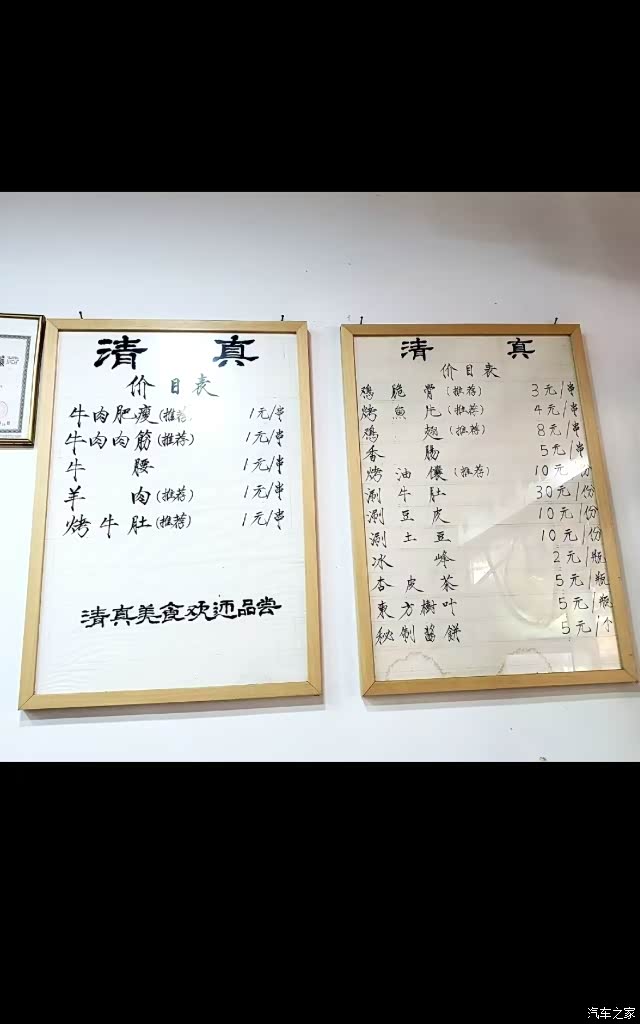 清真
价目表
牛肉肥瘦(推荐) 1元/串
牛肉肉筋(推荐) 1元/串
牛腰 1元/串
羊肉(推荐) 1元/串
烤牛肚(推荐) 1元/串
清真美食欢迎品尝
清真
价目表
鸡脆骨(推荐) 3元/串
烤魚片(推荐) 4元/串
鸡翅(推荐) 8元/串
香肠 5元/串
烤油馕(推荐) 10元/份
涮牛肚 30元/份
涮豆皮 10元/份
涮土豆 10元/份
冰峰 2元/瓶
杏皮茶 5元/瓶
東方樹叶 5元/瓶
秘制酱餅 5元/个
汽车之家